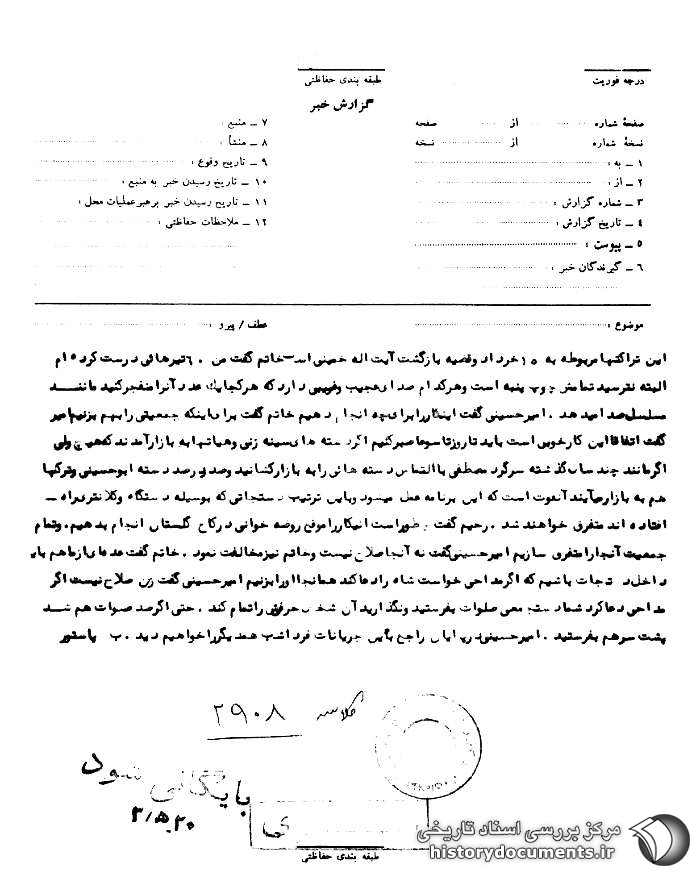 درجه فوریت
طبقه بندی حفاظتی
گزارش خبر
صفحهٔ شماره از صفحه
نسخهٔ شماره از نسخه
۱ ـ به :
۲ ـ از :
۳ ـ شماره گزارش :
۴ ـ تاریخ گزارش :
۵ ـ پیوست :
۶ ـ گیرندگان خبر :
۷ ـ منبع :
۸ ـ منشأ :
۹ ـ تاریخ وقوع :
۱۰ ـ تاریخ رسیدن خبر به منبع :
۱۱ ـ تاریخ رسیدن خبر برهبر عملیات محل :
۱۲ ـ ملاحظات حفاظتی :
موضوع :
عطف / پیرو :
این تراکتها مربوطه به ۱۵ خرداد وقضیه بازگشت آیت اله خمینی است خاتم گفت من ۶۰ تیرهائی درست کرده ام
البته نترسید تمامش چوب پنبه است وهرکدام صدای عجیب وغریبی دارد که هرکجا یک عدد آنرا منفجرکنید مانند
مسلسل صدا میدهد . امیرحسینی گفت اینکار را برای چه انجام دهیم خاتم گفت برای اینکه جمعیتی را بهم بزنیم امیر
گفت اتفاقا این کارخوبی است باید تا روز تاسوعا صبر کنیم اگر دسته های سینه زنی وهیاتها به بازار آمدند که هیچ ولی
اگر مانند چند سال گذشته سرگرد مصطفی با التماس دسته هائی را به بازار کشانید وصدو رصد دسته ابوحسینی وترکها
هم به بازار میآیند آنوقت است که این برنامه عمل میشود وباین ترتیب دستجاتی که بوسیله دستگاه وکلانتری راه ـ
افتاده اند متفرق خواهند شد . رحیم گفت بطور است اینکار را موقع روضه خوانی در کاخ گلستان انجام بدهیم وتمام
جمعیت آنجا را متفرق سازیم امیرحسینی گفت نه آنجا صلاح نیست وخاتم نیز مخالفت نمود . خاتم گفت عده ای از ما هم باید
داخل دستجات باشیم که اگر مداحی خواست شاه را دعا کند همانجا او را بزنیم امیرحسینی گفت زدن صلاح نیست اگر
مداحی دعا کرد شما دستجمعی صلوات بفرستید ونگذارید آن شخص حرفش را تمام کند . حتی اگر صد صلوات هم شد
پشت سرهم بفرستید . امیرحسینی در پایان راجع باین جریانات فردا شب همدیگر را خواهیم دید . ب پاستور
کلاسه ۲۹۰۸
بایگانی شود
طبقه بندی حفاظتی
مرکز بررسی اسناد تاریخی
historydocuments.ir